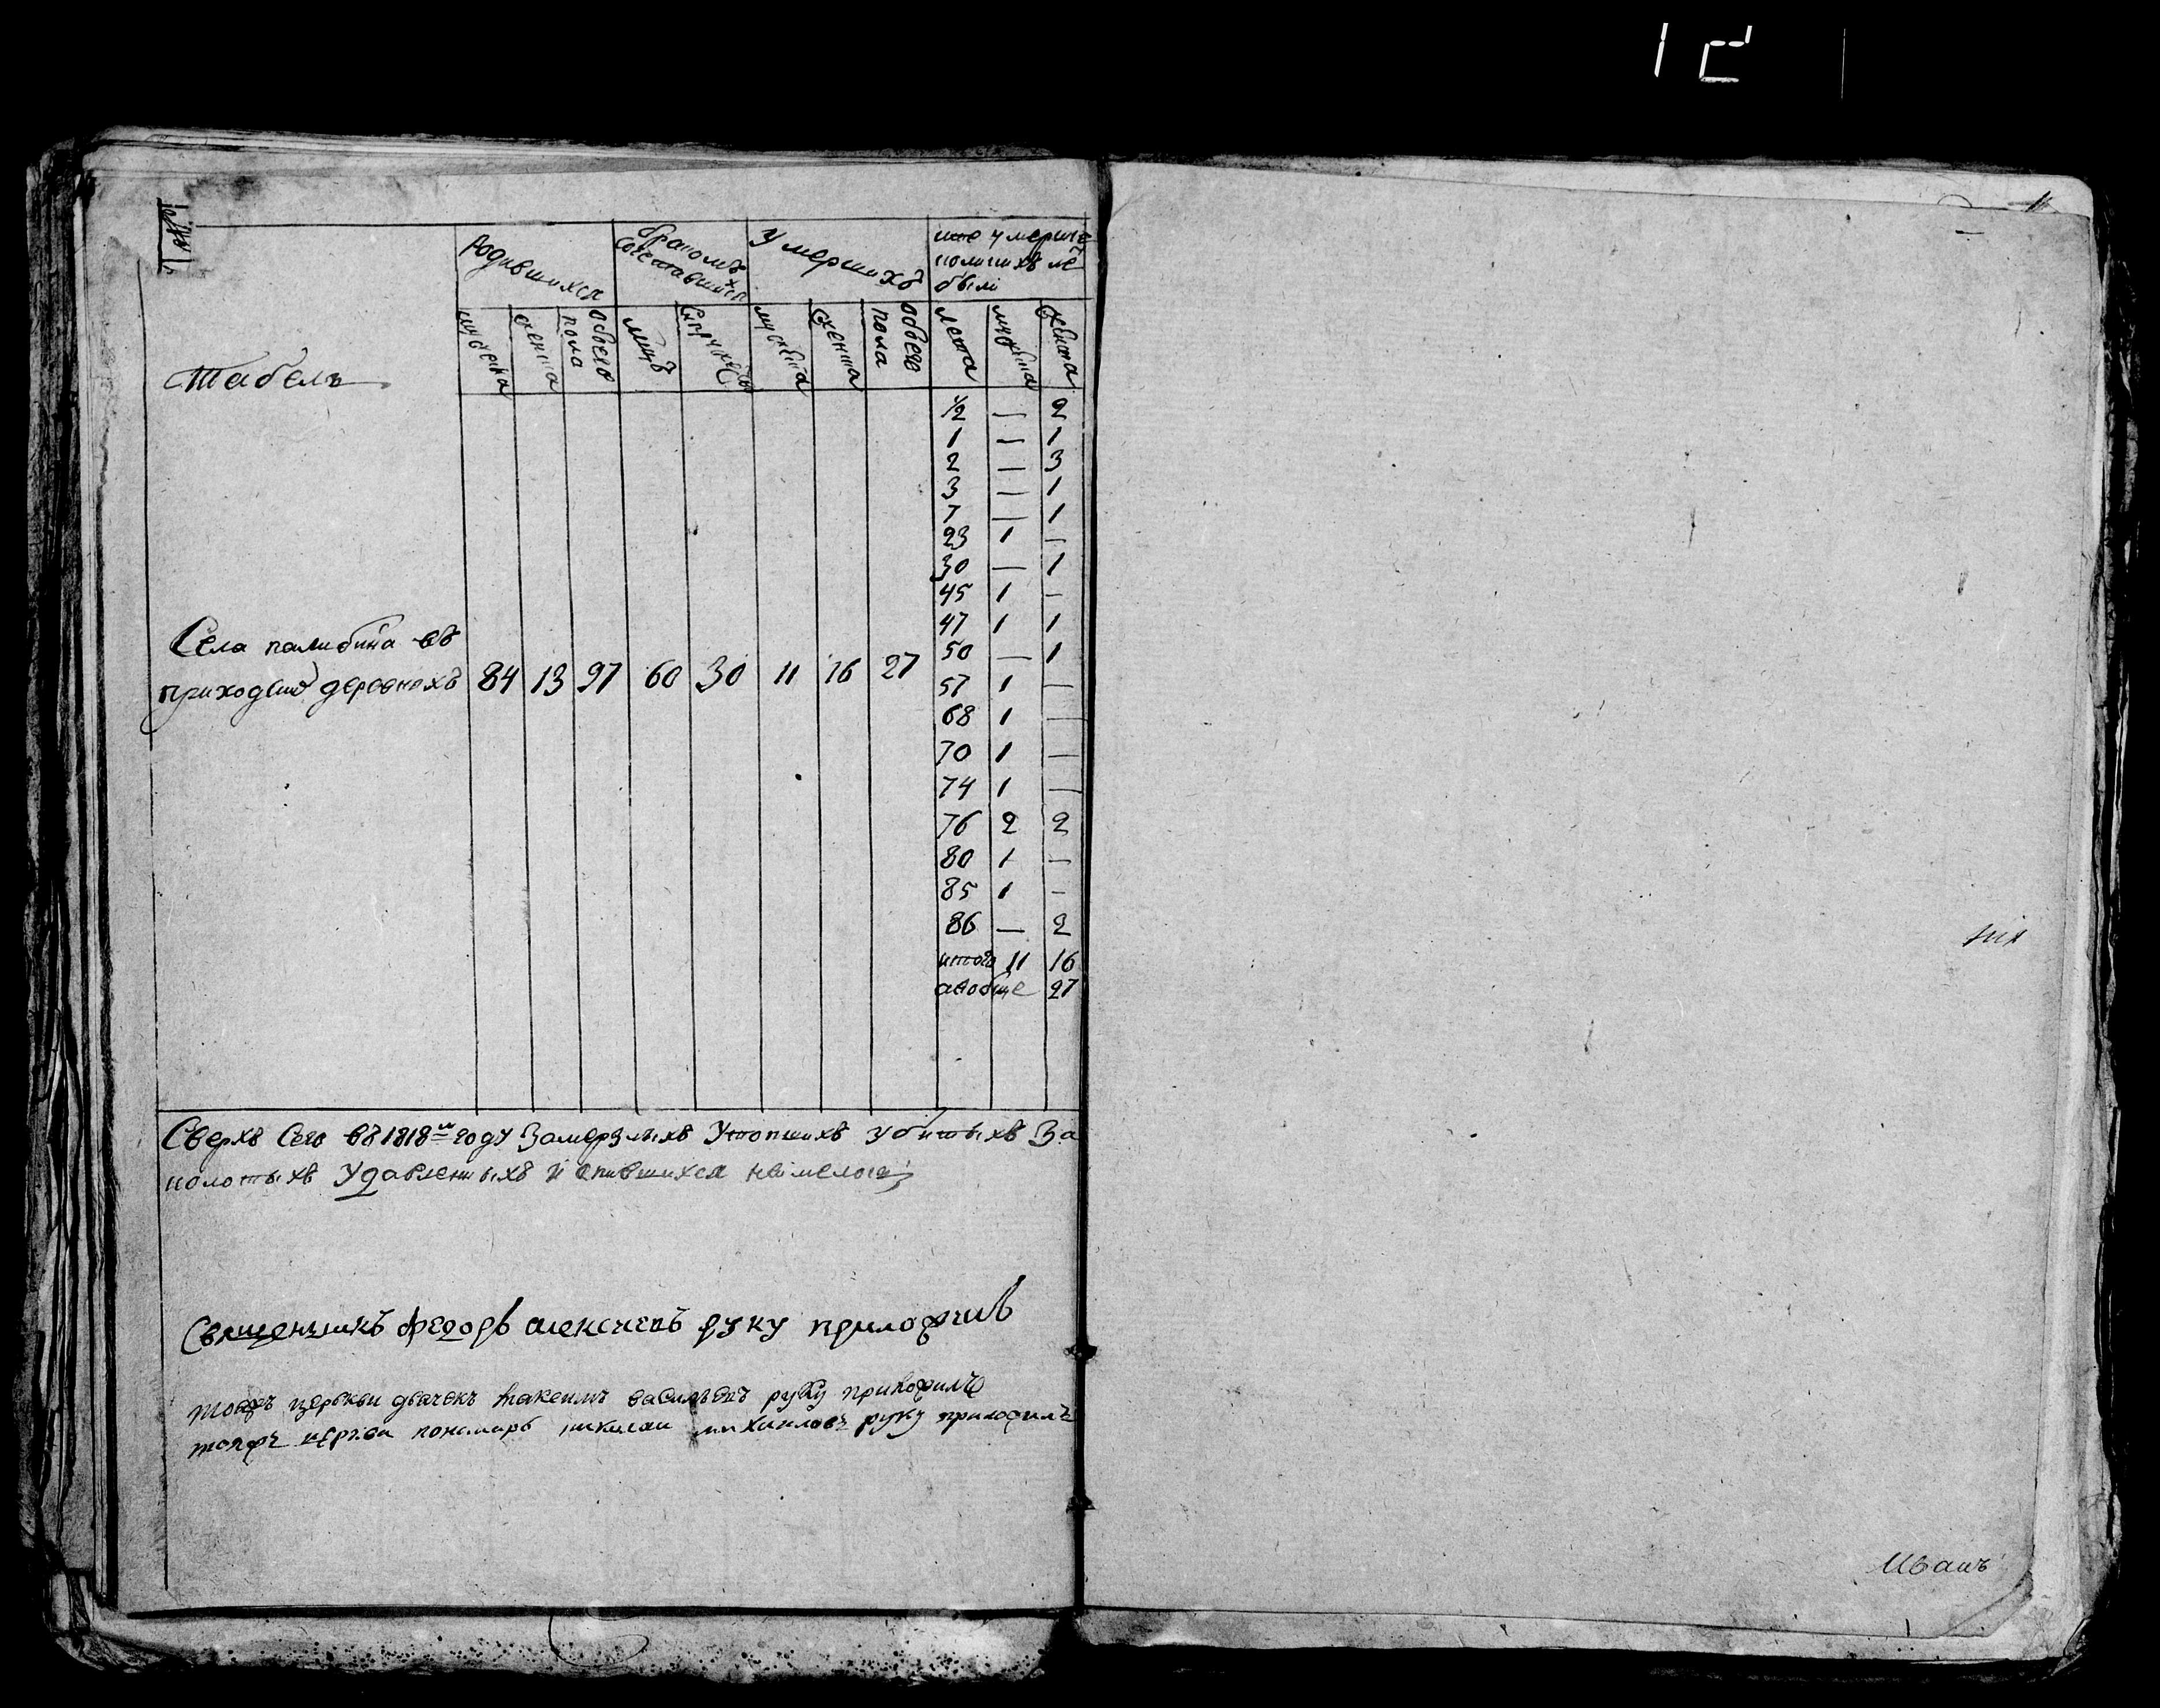 Табель
Родившихся
бракомъ сочетавшихся
Умершихъ
умерше
лѣ
были
мужеска
женска
обоего пола
лицъ
мужеска
женска
обоего пола
лета
мужеска
женска
½ — 2
1 — 1
2 — 3
3 — 1
7 — 1
23 1 —
30 — 1
45 1 —
47 1 1
50 — 1
57 1 —
68 1 —
70 1 —
74 1 —
76 2 2
80 1 —
85 1 —
86 — 2
итого 11 16
авобще 27
Села палибина въ
деревняхъ 84 13 97 60 30 11 16 27
Сверхъ Сего въ 1818м году Замерзлыхъ Утопшихъ Убитыхъ За
колотыхъ Удавленыхъ и опившихся неимелось
Священникъ федоръ алексеевъ руку приложив
тоежъ церькви дьячекъ максимъ василъевъ руку приложилъ
тояжъ церкви пономарь николаи михаиловъ руку приложилъ
Иванъ